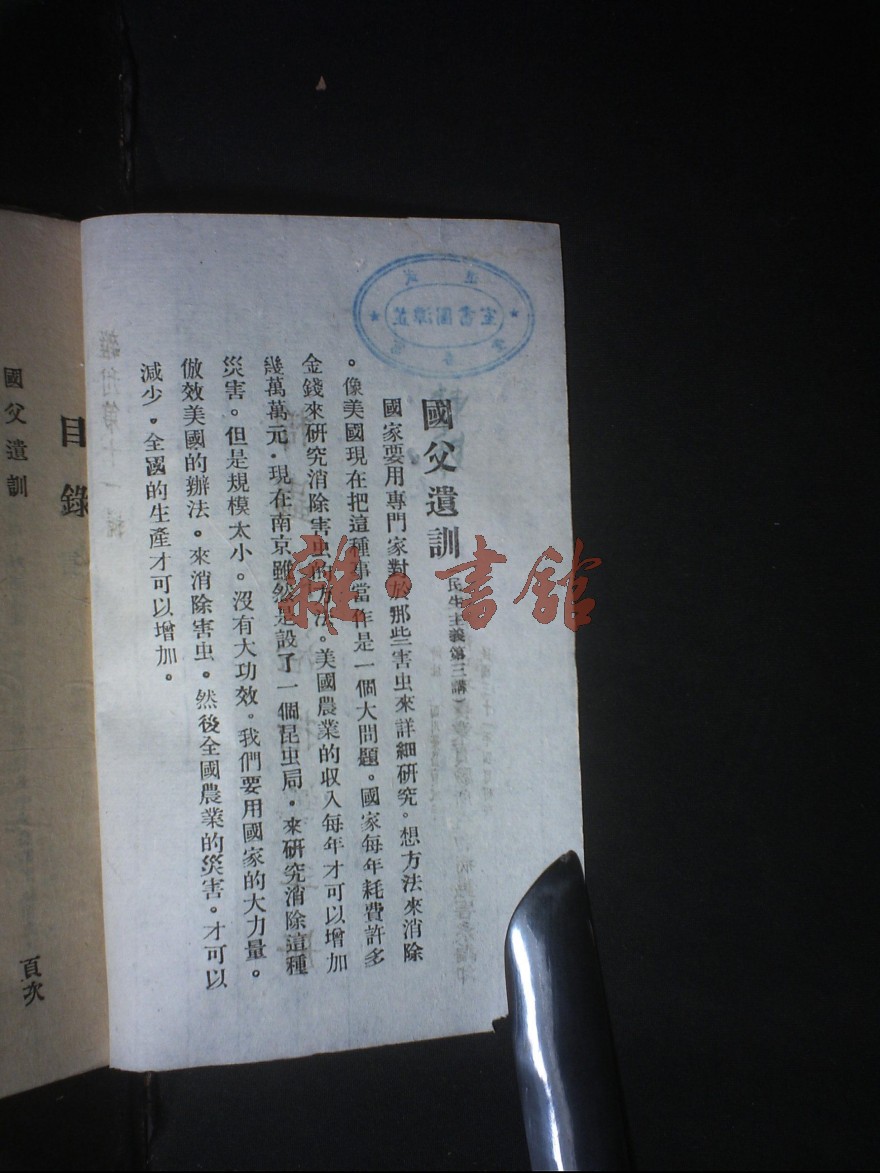 國父遺訓
民生主義第三講
國家要用專門家對於那些害虫來詳細研究。想方法來消除
。像美國現在把這種事當作是一個大問題。國家每年耗費許多
金錢來研究消除害虫的方法。美國農業的收入每年才可以增加
幾萬萬元．現在南京雖然是設了一個昆虫局．來研究消除這種
災害。但是規模太小。沒有大功效。我們要用國家的大力量。
倣效美國的辦法。來消除害虫。然後全國農業的災害。才可以
減少。全國的生產才可以增加。
目錄
國父遺訓
頁次
雜·書館